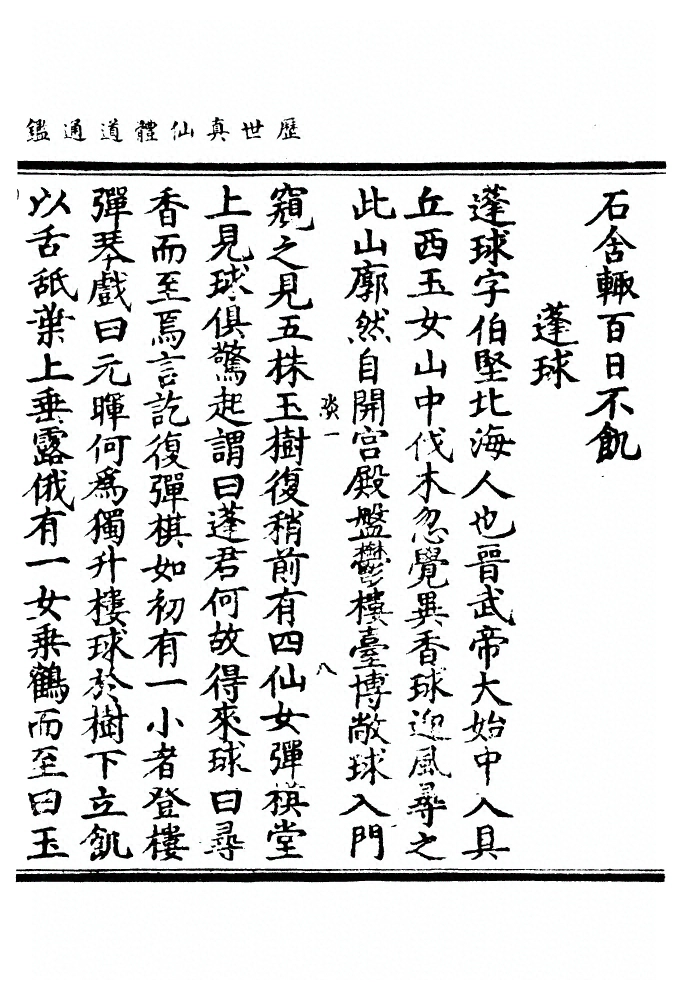 歷世真仙體道通鑑
石舍輙百日不飢
蓬球
蓬球字伯堅北海人也晉武帝大始中入具
丘西玉女山中伐木忽覺異香球迎風尋之
此山廓然自開宮殿盤鬱樓臺博敞球入門
淡一
八
窺之見五株玉樹復稍前有四仙女彈棋堂
上見球俱驚起謂曰蓬君何故得來球曰尋
香而至焉言訖復彈棋如初有一小者登樓
彈琴戲曰元暉何為獨升樓球於樹下立飢
以舌舐葉上垂露俄有一女乘鶴而至曰玉